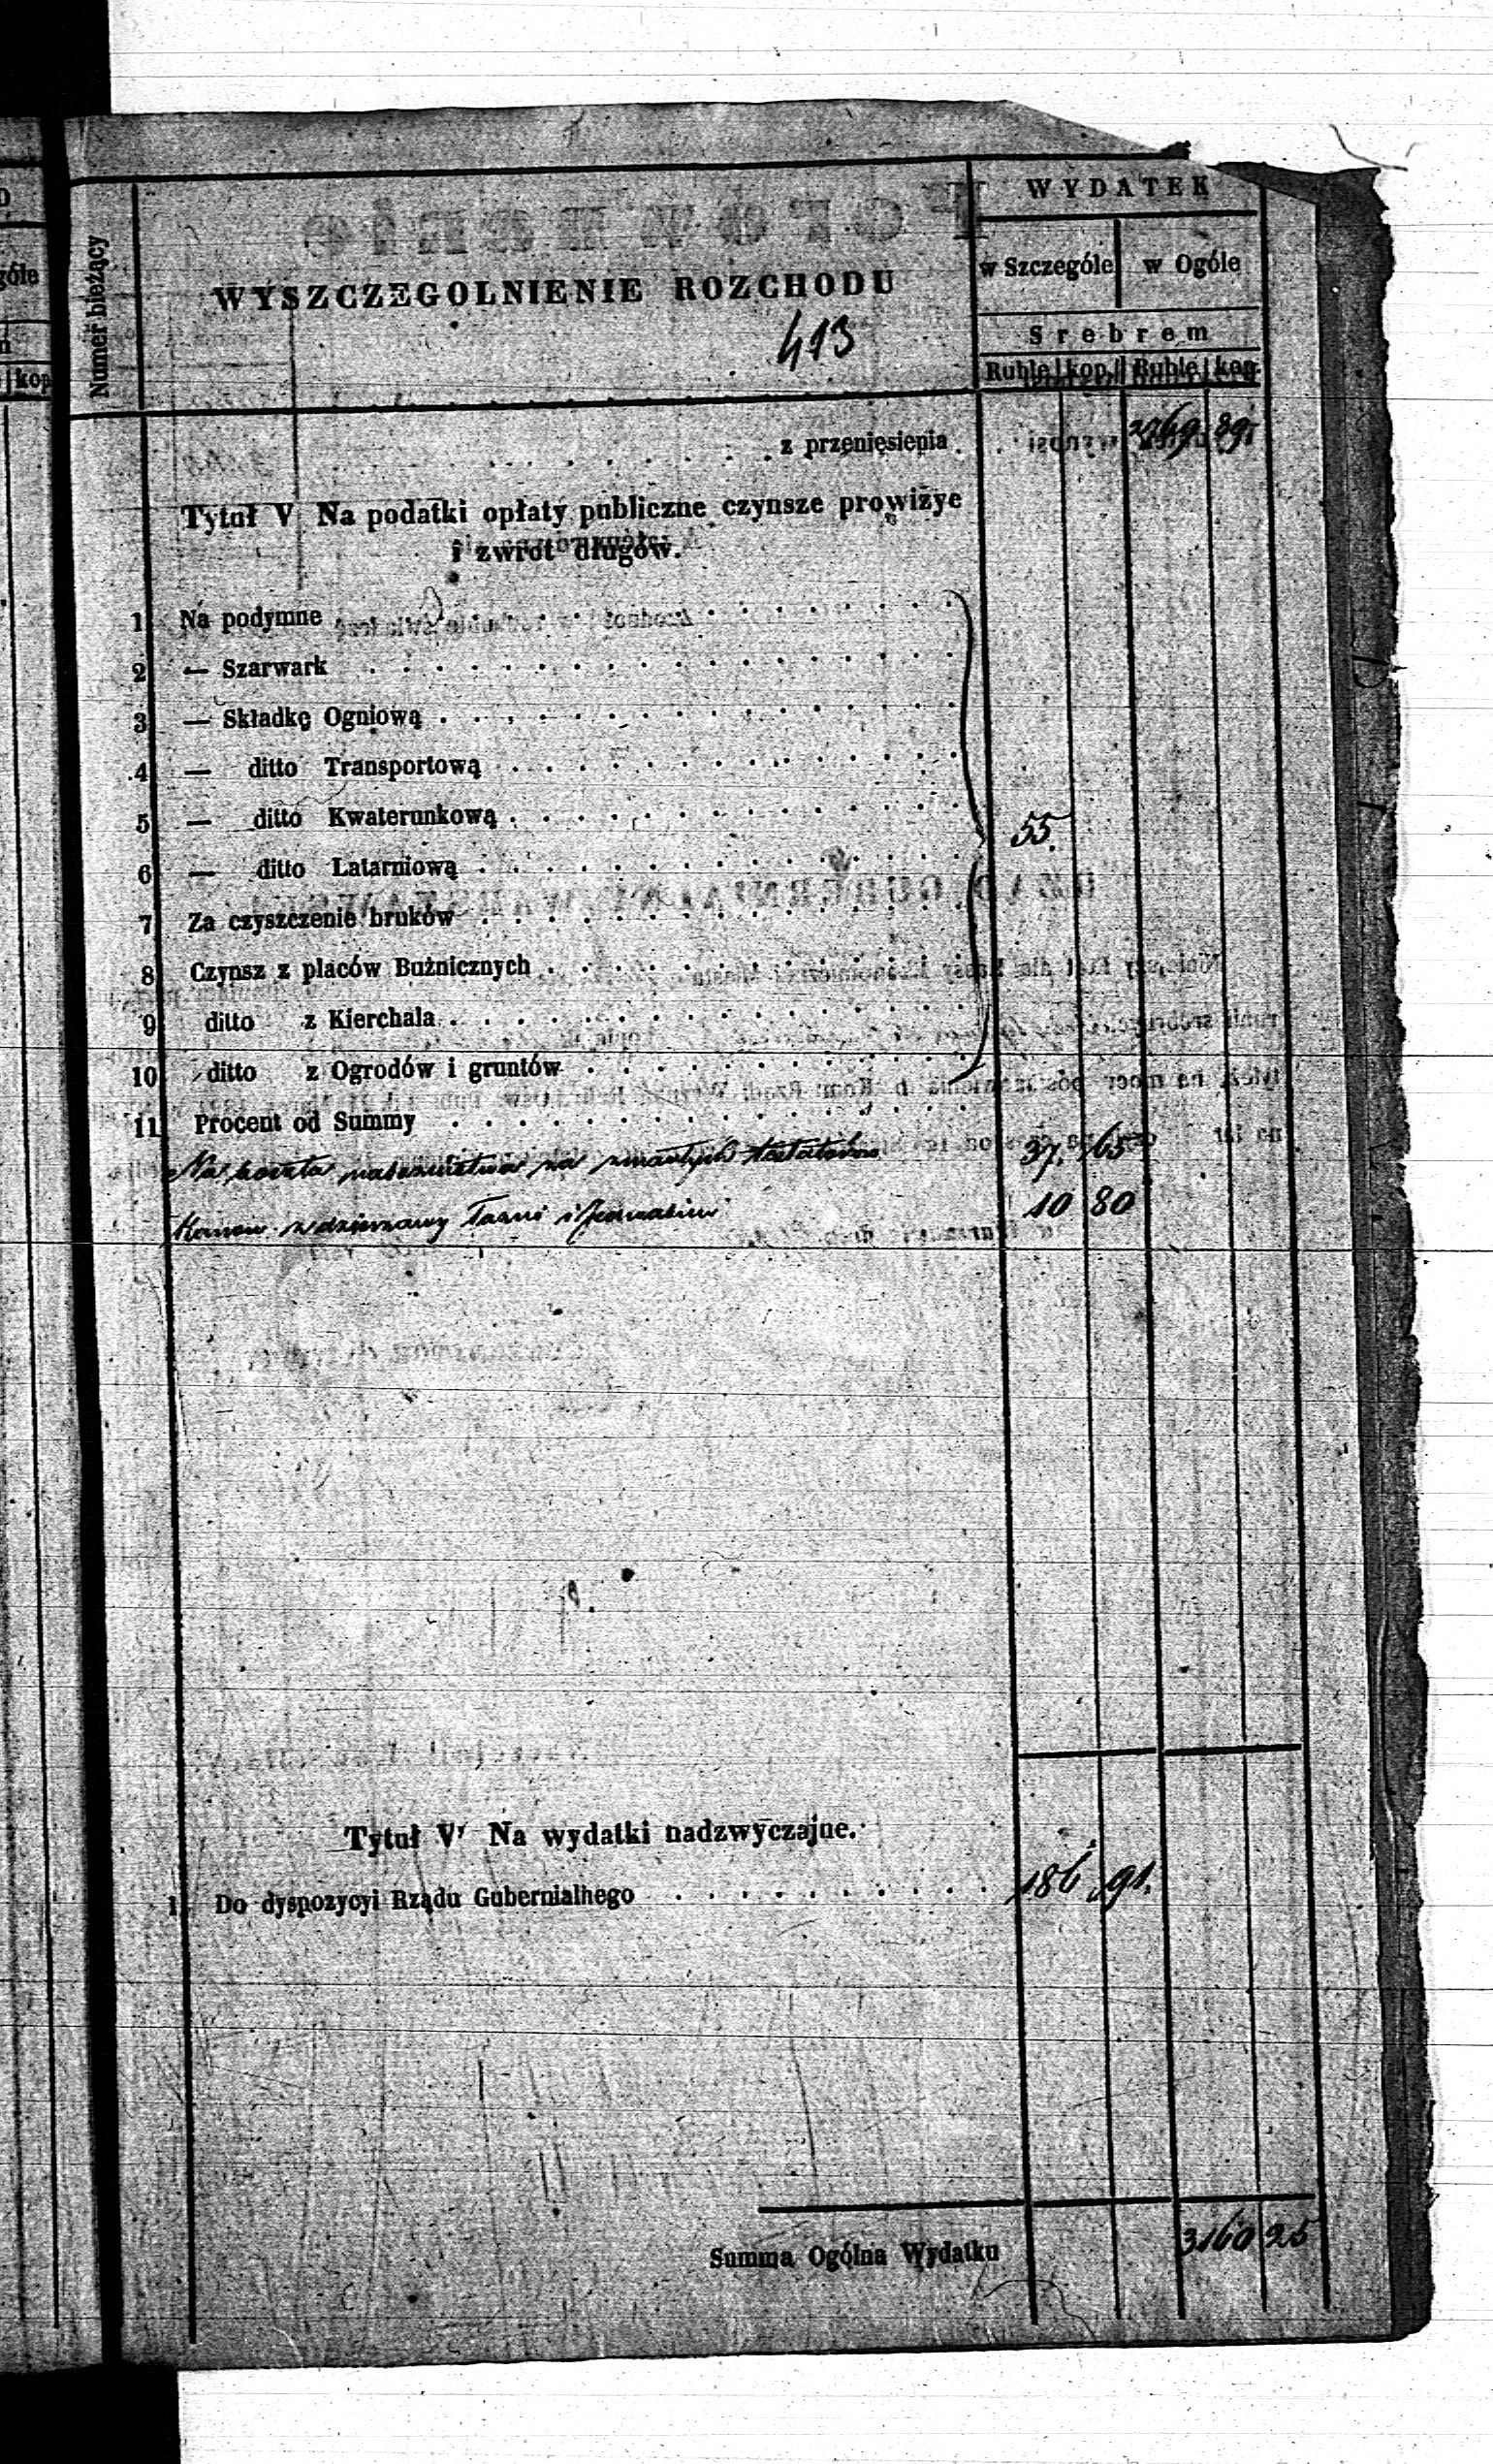 WYDATEK
Numer bieżący
WYSZCZEGOLNIENIE ROZCHODU
w Szczególe w Ogóle
413
Srebrem
Ruble kop. Ruble kop.
z przeniesienia 2769 89
Tytuł V Na podatki opłaty publiczne czynsze prowizye
i zwrot długów.
1 Na podymne
2 — Szarwark
3 — Składkę Ogniową
4 — ditto Transportową
5 — ditto Kwaterunkową 55
6 — ditto Latarniową
7 Za czyszczenie bruków
8 Czynsz z placów Bużnicznych
9 ditto z Kierchala
10 ditto z Ogrodów i gruntów
11 Procent od Summy
Na koszta nabożeństwa za zmarłych 37 65
Kanon z dzierżawy Łaźni i 10 80
Tytuł V Na wydatki nadzwyczajne.
1 Do dyspozycyi Rządu Gubernialnego 186 91
Summa Ogólna Wydatku 3160 25